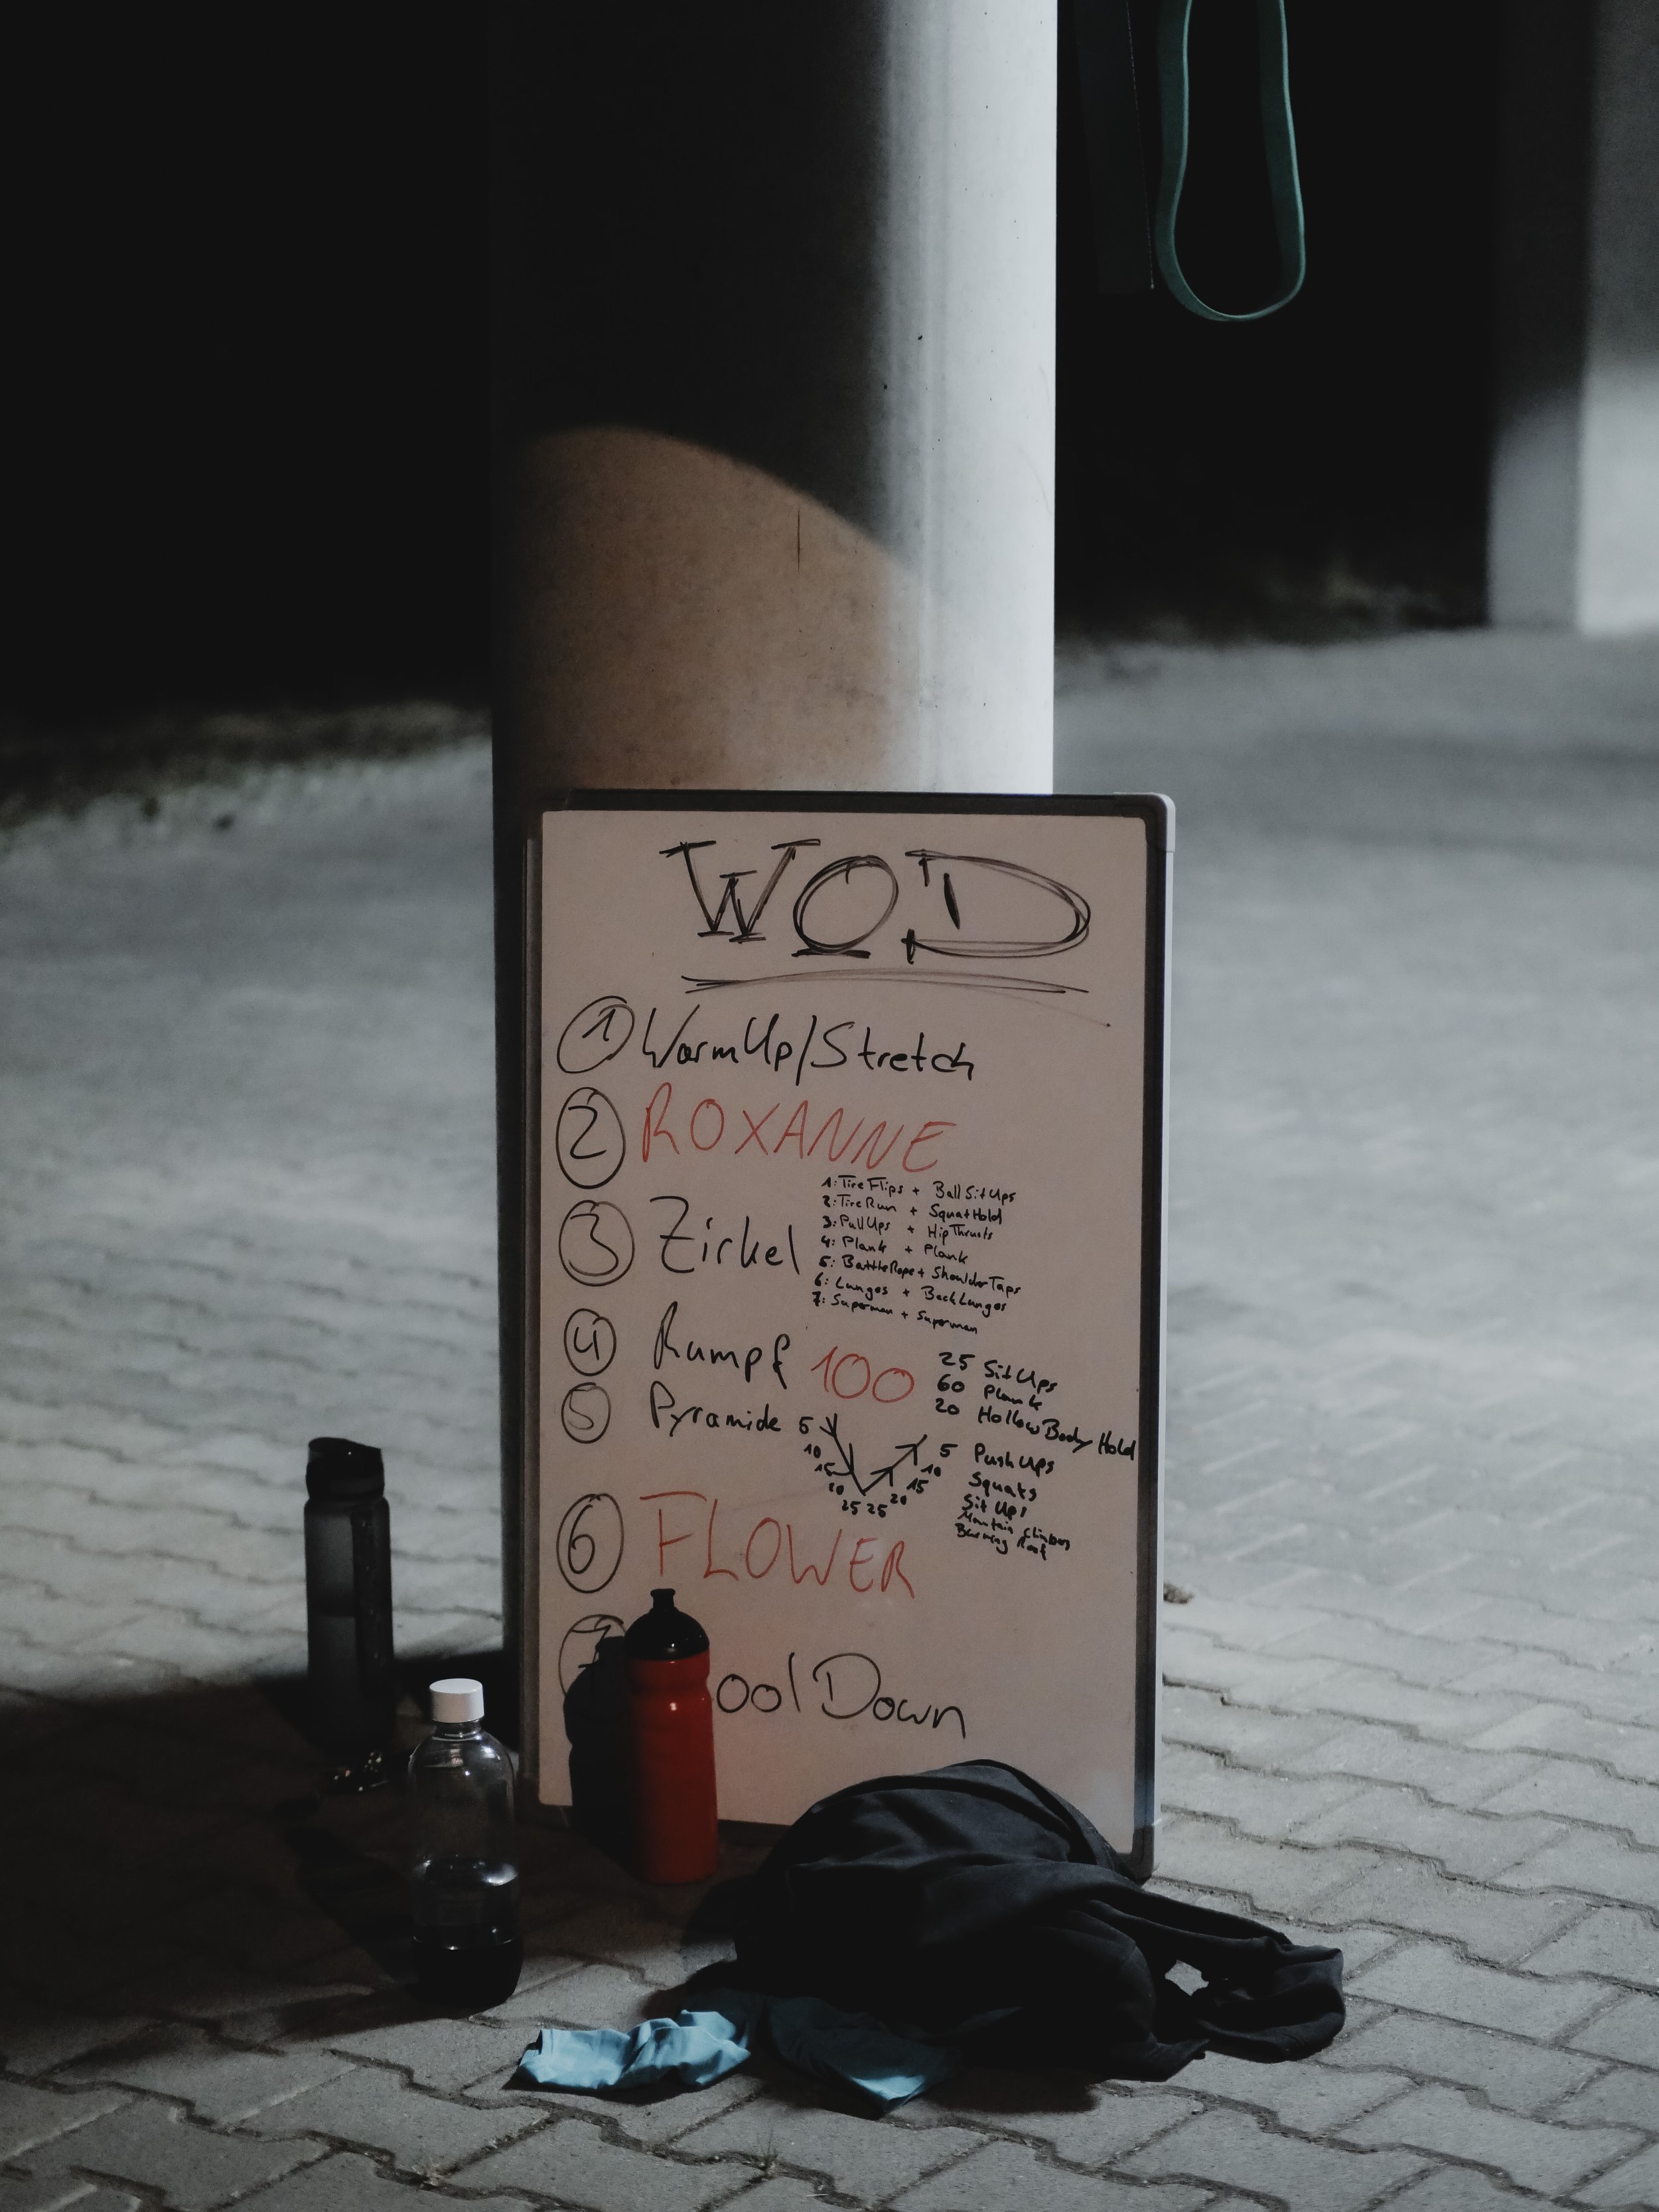 WOD
1 WarmUp/Stretch
2 ROXANNE
3 Zirkel
1: Tire Flips + Ball Sit Ups
2: Tire Run + Squat Hold
3: Pull Ups + Hip Thrusts
4: Plank + Plank
5: Battle Rope + Shoulder Taps
6: Lunges + Back Lunges
7: Superman + Superman
4 Rumpf 100
25 Sit Ups
60 Plank
20 Hollow Body Hold
5 Pyramide
5 10 15 20 25 25 20 15 10 5
Push Ups
Squats
Sit Ups
Mountain Climbers
Burning
6 FLOWER
7 ool Down